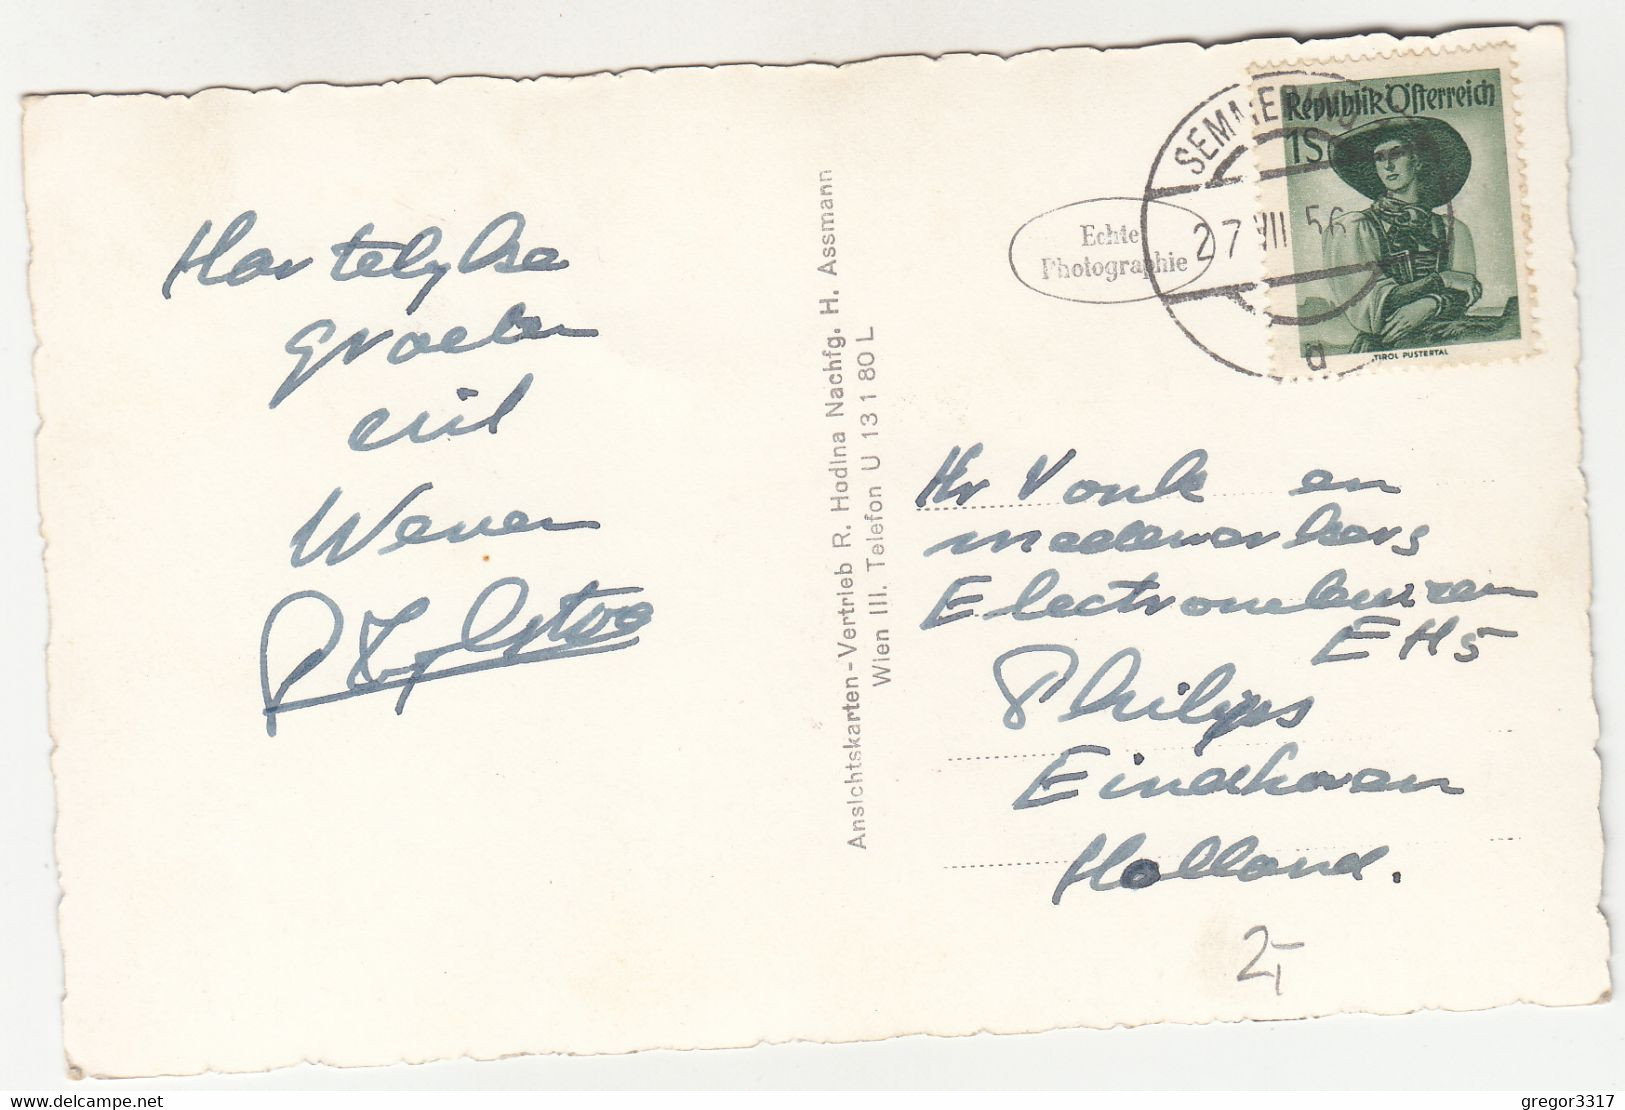 Hartelyke
groeten
uit
Wenen
Ansichtskarten-Vertrieb R. Hodina Nachfg. H. Assmann
Wien III. Telefon U 13 1 80 L
Echte
Photographie
SEMMERING
27 VII 56
a
Republik Österreich
1S
TIROL PUSTERTAL
Hr Vonk en
medewerkers
Electronenbuizen
EH5
Philips
Eindhoven
Holland.
2,-
gregor3317
delcampe.net